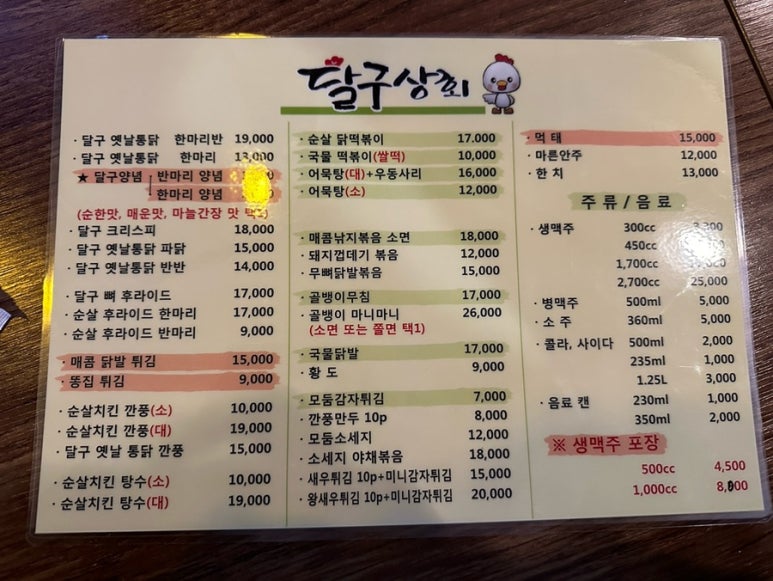 달구상회
· 달구 옛날통닭 한마리반 19,000
· 달구 옛날통닭 한마리 13,000
★ 달구양념 반마리 양념
한마리 양념
(순한맛, 매운맛, 마늘간장 맛 택1)
· 달구 크리스피 18,000
· 달구 옛날통닭 파닭 15,000
· 달구 옛날통닭 반반 14,000
· 달구 뼈 후라이드 17,000
· 순살 후라이드 한마리 17,000
· 순살 후라이드 반마리 9,000
· 매콤 닭발 튀김 15,000
· 똥집 튀김 9,000
· 순살치킨 깐풍(소) 10,000
· 순살치킨 깐풍(대) 19,000
· 달구 옛날 통닭 깐풍 15,000
· 순살치킨 탕수(소) 10,000
· 순살치킨 탕수(대) 19,000
· 순살 닭떡볶이 17.000
· 국물 떡볶이(쌀떡) 10,000
· 어묵탕(대)+우동사리 16,000
· 어묵탕(소) 12,000
· 매콤낚지볶음 소면 18,000
· 돼지껍데기 볶음 12,000
· 무뼈닭발볶음 15,000
· 골뱅이무침 17,000
· 골뱅이 마니마니 26,000
(소면 또는 쫄면 택1)
· 국물닭발 17,000
· 황 도 9,000
· 모둠감자튀김 7,000
· 깐풍만두 10p 8,000
· 모둠소세지 12,000
· 소세지 야채볶음 18,000
· 새우튀김 10p+미니감자튀김 15,000
· 왕새우튀김 10p+미니감자튀김 20,000
· 먹 태 15,000
· 마른안주 12,000
· 한 치 13,000
주 류 / 음 료
· 생맥주 300cc
450cc
1,700cc
2,700cc 25,000
· 병맥주 500ml 5,000
· 소 주 360ml 5,000
· 콜라, 사이다 500ml 2,000
235ml 1,000
1.25L 3,000
· 음료 캔 230ml 1,000
350ml 2,000
※ 생맥주 포장
500cc 4,500
1,000cc 8,000